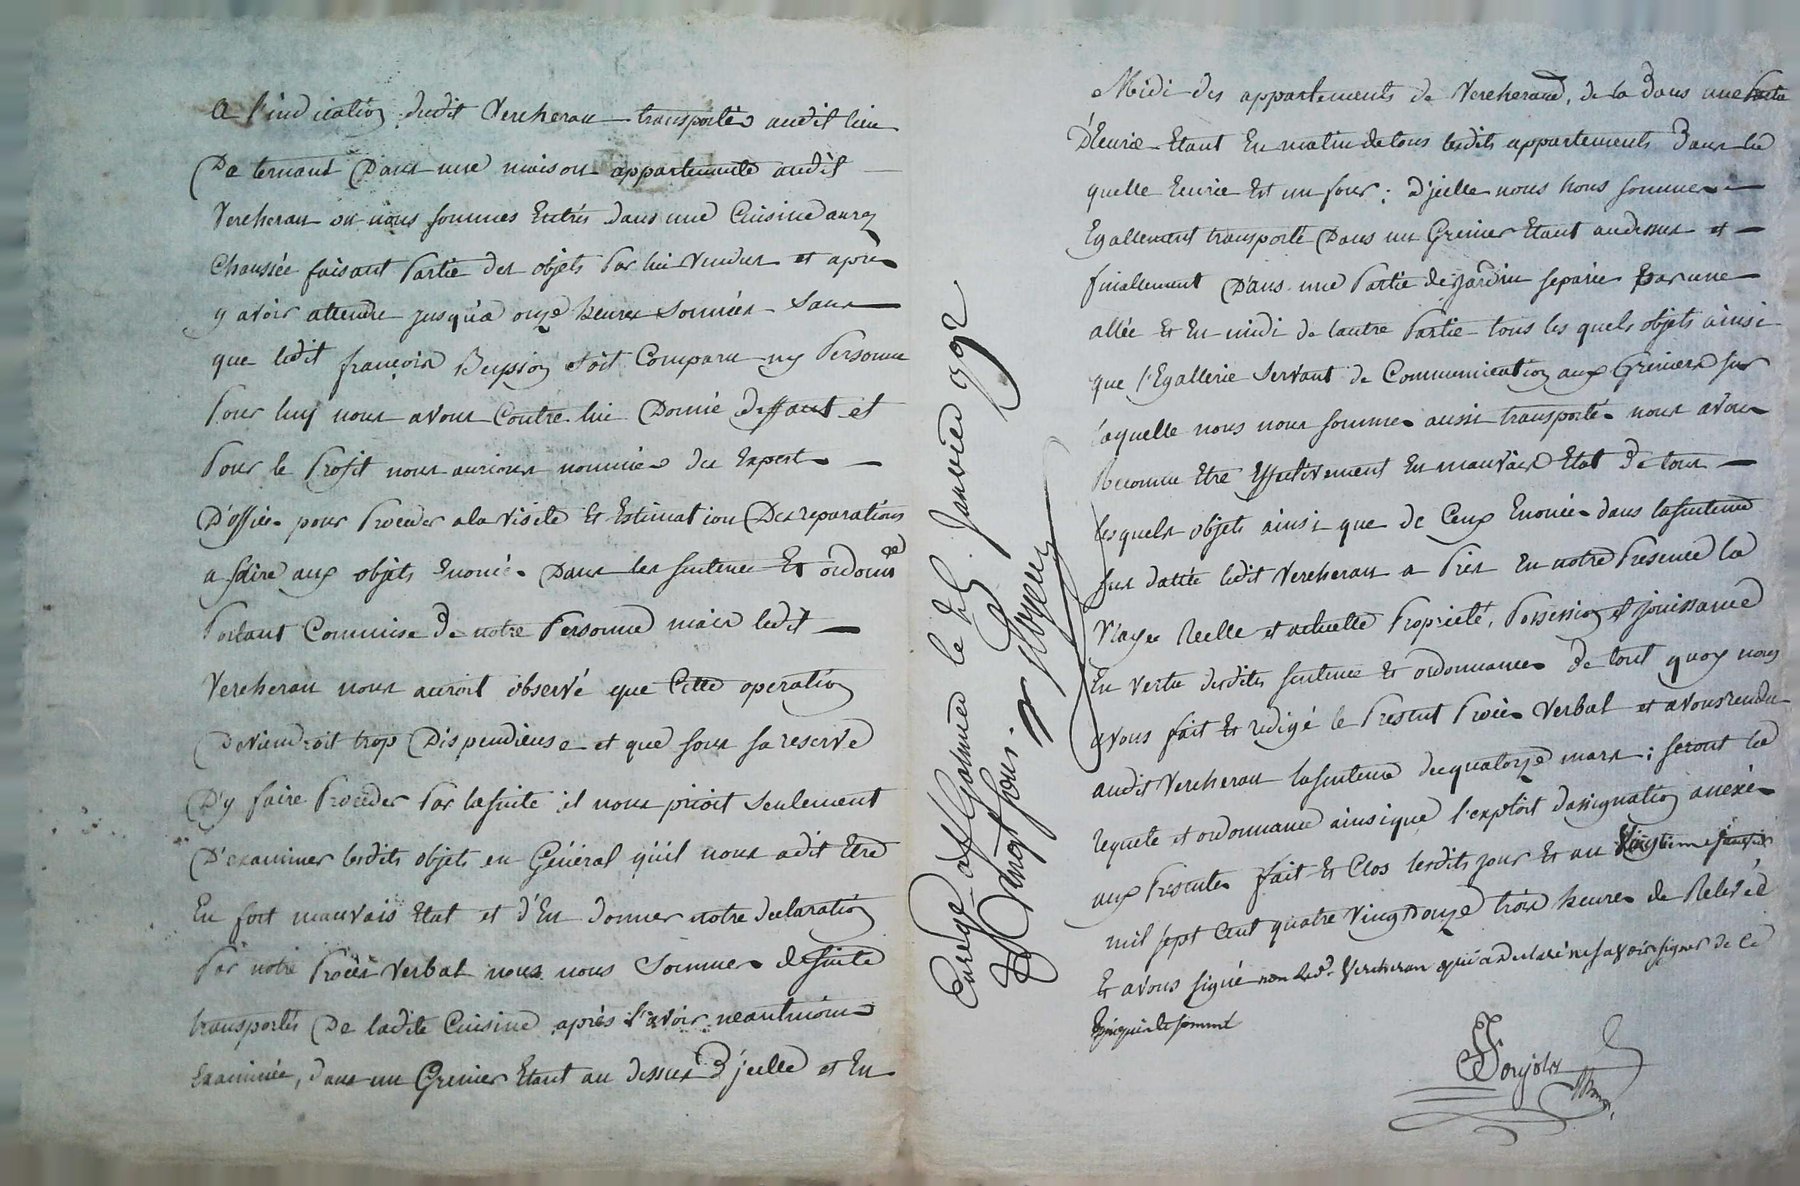 a l'indication dudit Vercherau transportés audit lieu
De ternant Dans une maison appartenante audit
Vercherau ou nous sommes Entrés dans une Cuisine aurez
Chaussée faisant Partie des objets Par lui Vendus et après
y avoir attendu jusqu'a onze heures Sonnées Sans
que ledit françois Beyssion soit Comparu ny Personne
Pour luy nous avons Contre lui Donné deffaut et
Pour le Profit nous aurions nommés des Experts
D'office pour Proceder a la Visite Et Estimation Des reparations
a faire aux objets Enoncés Dans les sentence Et ordonnce
Portant Commise De notre Personne mais ledit
Vercherau nous auroit observé que Cette operation
Deviendroit trop Dispendieuse et que sous sa reserve
D'y faire Proceder Par la suite il nous prioit Seulement
D'examiner lesdits objets en Général qu'il nous a dit Etre
En fort mauvais Etat et d'En donner notre declaration
Par notre Procès Verbal nous nous Sommes de suite
transportés De ladite Cuisine après l'avoir neantmoins
Examinée, dans un Grenier Etant au dessus d'jcelle et En
Enregé à St Galmier le dix Janvier 792
Rt vingt sous
Midi des appartements de Vercherand, de la Dans une Partie
D'Ecurie Etant En matin de tous lesdits appartements Dans la
quelle Ecurie Est un four ; d'jcelle nous nous sommes
Egallement transporté Dans un Grenier Etant audessus et
finallement Dans une Partie de jardin separée Par une
allée Et En midi de l'autre Partie tous les quels objets ainsi
que l'Egallerie Servant de Communication aux Greniers sur
laquelle nous nous sommes aussi transportés nous avons
Reconnu Etre Effectivement En mauvais Etat De tous
lesquels objets ainsi que de Ceux Enoncés dans la sentence
sus dattée ledit Vercherau a Pris En notre Presence la
Vraye Reelle et actuelle Proprieté, Possession et jouissance
En vertu desdites sentence Et ordonnances De tout quoy nous
avons fait Et redigé le Present Procès Verbal et avons rendu
audit Vercherau la sentence du quatorze mars ; seront la
requete et ordonnance ainsi que l'exploit d'assignation anexés
aux Presentes fait Et Clos lesdits jour Et an
mil sept Cent quatre Vingt Douze trois heures de Relevée
Et avons signé non led. Vercherau qui a declaré ne savoir signer de ce
Enquis et sommé